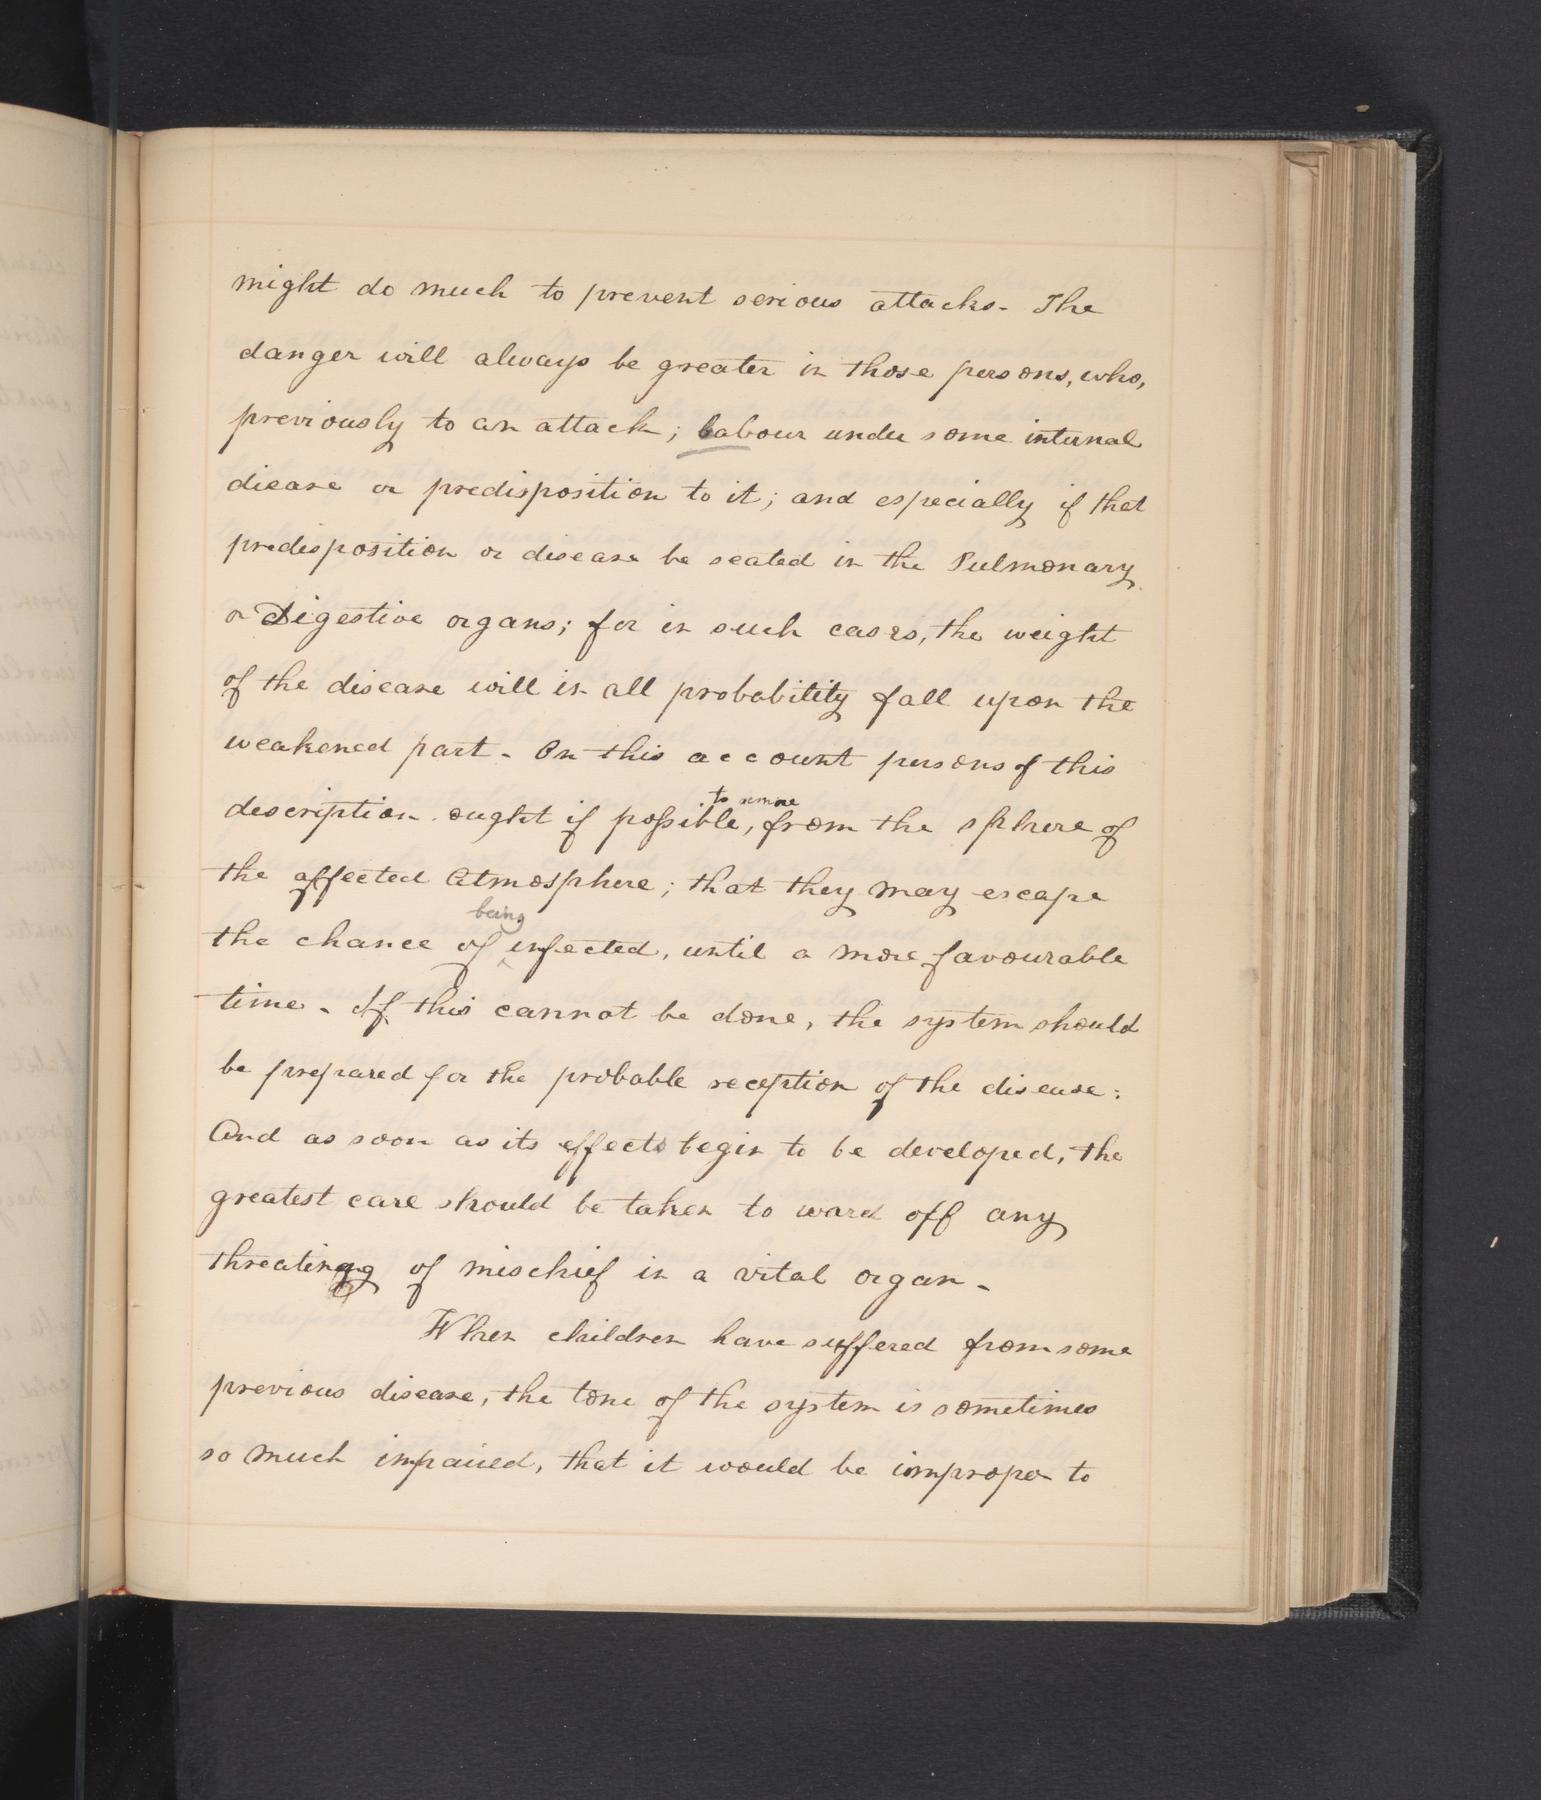 might do much to prevent serious attacks - The
danger will always be greater in those persons, who,
previously to an attack; labour under some internal
diease or predisposition to it; and especially if that
predisposition or disease be seated in the Pulmonary
or Digestive organs; for in such cases, the weight
of the disease will in all probability fall upon the
weakened part - On this account persons of this
to remove
description ought if possible, from the sphere of
the affected Atmosphere; that they may escape
being
the chance of infected, until a more favourable
time - If this cannot be done, the system should
be prepared for the probable reception of the disease:
And as soon as its effects begin to be developed, the
greatest care should be taken to ward off any
threatining of mischief in a vital organ -
When children have suffered from some
previous disease, the tone of the system is sometimes
so much impaired, that it would be improper to